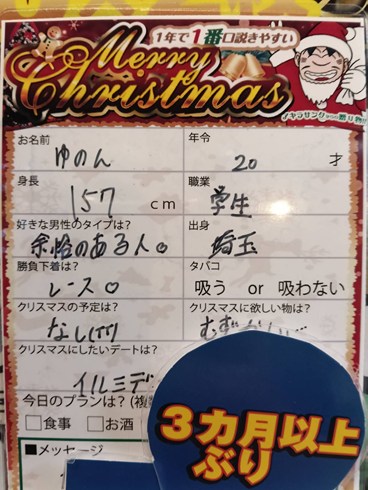 1年で1番口説きやすい
Merry
Christmas
お名前
ゆのん
年令
20 才
身長
157 cm
職業
学生
好きな男性のタイプは?
余裕のある人。
出身
埼玉
勝負下着は?
レース♡
タバコ
吸う or 吸わない
クリスマスの予定は?
なし(笑)
クリスマスに欲しい物は?
クリスマスにしたいデートは?
イルミデ
今日のプランは?(複
□食事 □お酒
■メッセージ
3カ月以上
ぶり